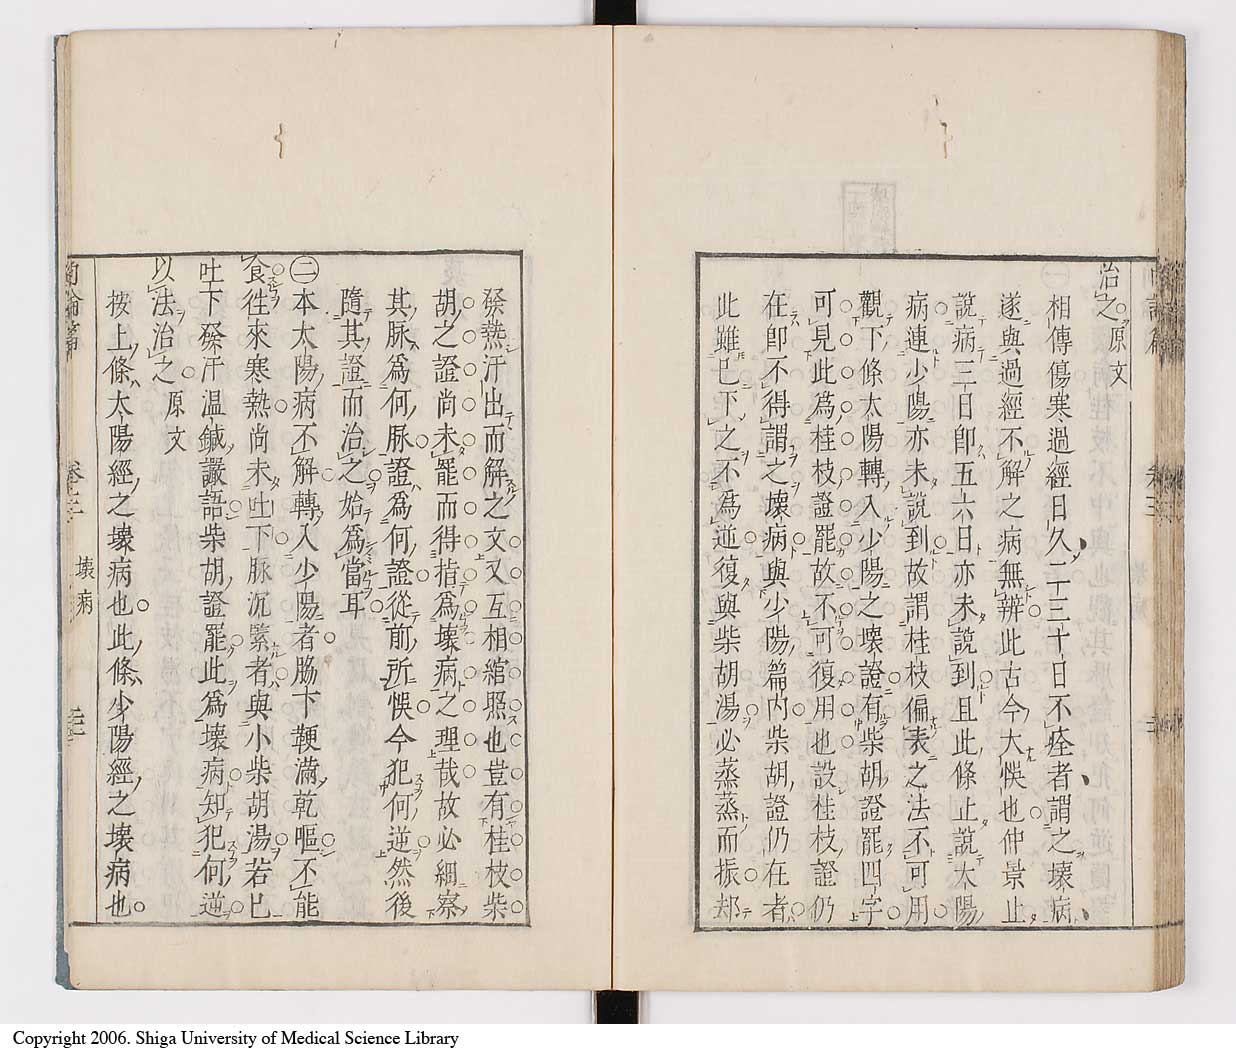 治之原文
相傳傷寒過經日久二三十日不痊者謂之壞病
遂與過經不解之病無辨此古今大悞也仲景止
說病三日即五六日亦未說到且此條止說太陽
病連少陽亦未說到故謂桂枝偏表之法不可用
觀下條太陽轉入少陽之壞證有柴胡證罷四字
可見此爲桂枝證罷故不可復用也設桂枝證仍
在即不得謂之壞病與少陽篇內柴胡證仍在者
此雖已下之不爲逆復與柴胡湯必蒸蒸而振却
發熱汗出而解之文又互相綰照也豈有桂枝柴
胡之證尚未罷而得指爲壞病之理哉故必細察
其脉爲何脉證爲何證從前所悞今犯何逆然後
隨其證而治之始爲當耳
㊁本太陽病不解轉入少陽者脇下鞕滿乾嘔不能
食徃來寒熱尚未吐下脉沉緊者與小柴胡湯若已
吐下發汗温鍼讝語柴胡證罷此爲壞病知犯何逆
以法治之原文
按上條太陽經之壞病也此條少陽經之壞病也
尚論篇
卷三
壞病
Copyright 2006. Shiga University of Medical Science Library